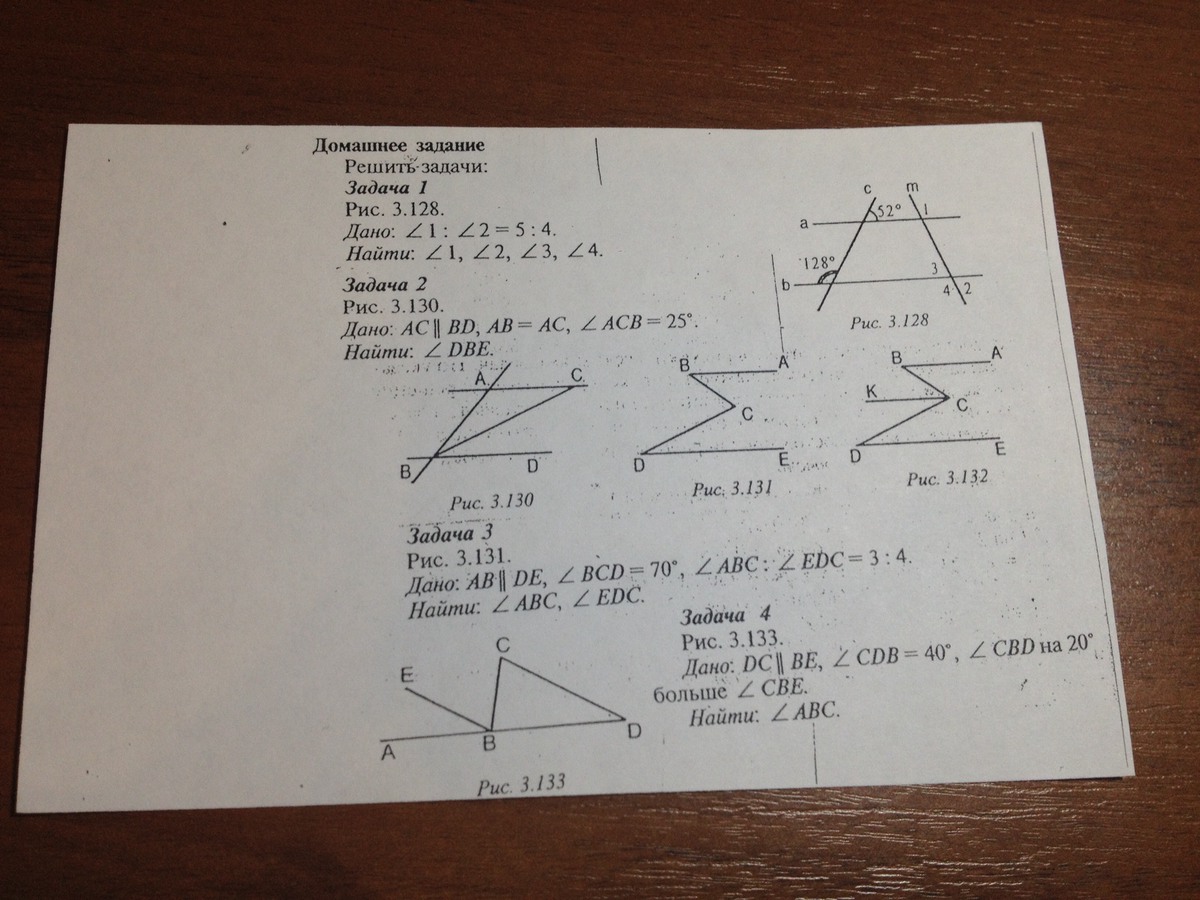 Домашнее задание
Решить задачи:
Задача 1
Рис. 3.128.
Дано: ∠1 : ∠2 = 5 : 4.
Найти: ∠1, ∠2, ∠3, ∠4.
c m
52° 1
a
128° 3
b
4 2
Рис. 3.128
Задача 2
Рис. 3.130.
Дано: AC ∥ BD, AB = AC, ∠ACB = 25°.
Найти: ∠DBE.
A C
B D
Рис. 3.130
B A
C
D E
Рис. 3.131
B A
K C
D E
Рис. 3.132
Задача 3
Рис. 3.131.
Дано: AB ∥ DE, ∠BCD = 70°, ∠ABC : ∠EDC = 3 : 4.
Найти: ∠ABC, ∠EDC.
C
E
A B D
Рис. 3.133
Задача 4
Рис. 3.133.
Дано: DC ∥ BE, ∠CDB = 40°, ∠CBD на 20°
больше ∠CBE.
Найти: ∠ABC.